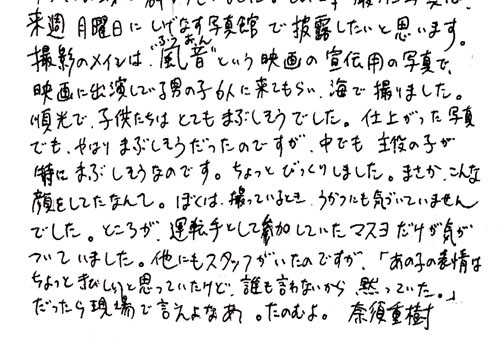 来週 月曜日に しげなす写真館 で 披露したいと思います。
撮影のメインは、"風音"という 映画の 宣伝用の写真で、
ふう おん
映画に出演している男の子6人に来てもらい、海で 撮りました。
順光で、子供たちは とても まぶしそうでした。仕上がった写真
でも、やはり まぶしそうだったのですが、中でも 主役の子が
特に まぶしそうなのです。ちょっと びっくりしました。まさか、こんな
顔をしてたなんて。ぼくは、撮っているとき、うかつにも気づいていません
でした。ところが、運転手として参加していた マスヨだけが気が
ついていました。他にもスタッフがいたのですが、「あの子の表情は
ちょっと きびしいと思っていたけど、誰も言わないから 黙っていた。」
だったら現場で言えよなあ。たのむよ。 奈須重樹